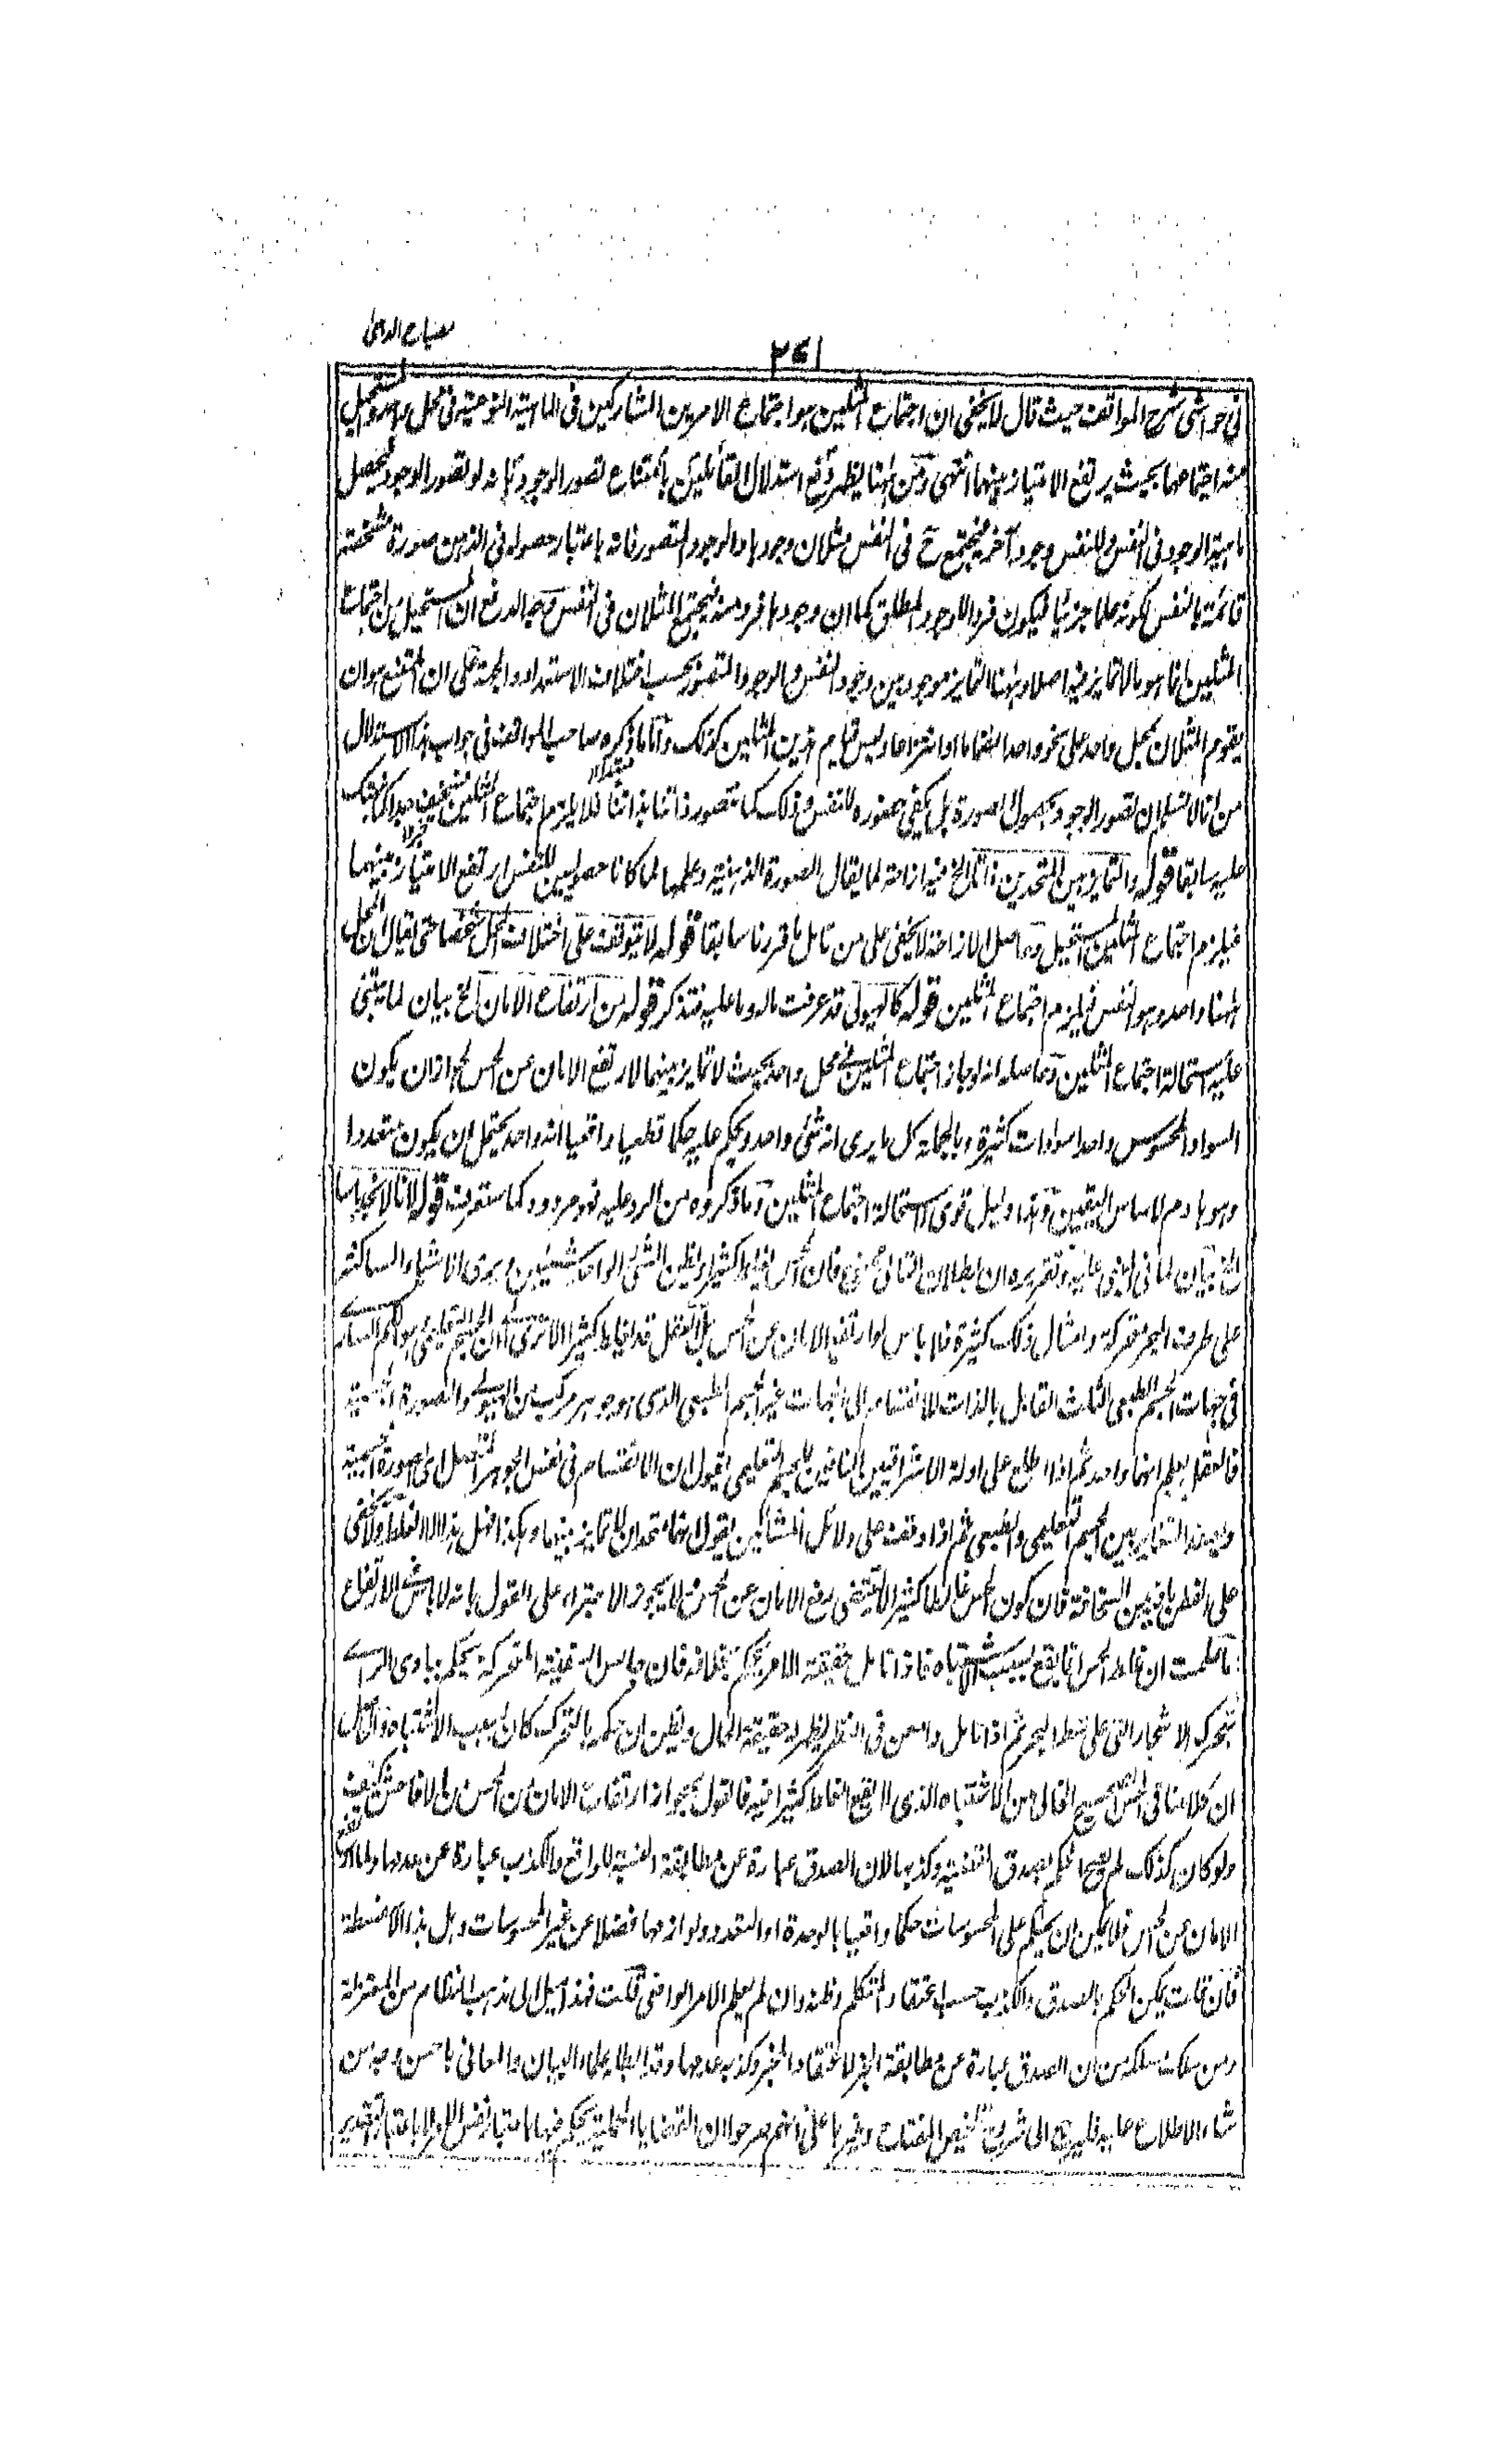 مصباح الدجى
٢٧١
في حواشي شرح المواقف حيث قال لا يخفى ان اجتماع المثلين هو اجتماع الامرين المشاركين في الماهية النوعية في محل واحد والمستحيل
منه اجتماعهما بحيث يرتفع الامتياز بينهما انتهى ومن ههنا يظهر دفع استدلال القائلين بامتناع تصور الوجود بانه لو تصور الوجود لحصل
ماهية الوجود في النفس وللنفس وجود آخر فيجتمع ح في النفس مثلان وجودها والوجود المتصور فانه باعتبار حصوله في الذهن صورة مشخصة
قائمة بالنفس لكونه علما جزئيا فيكون فردا للوجود المطلق كما ان وجودها فرد منه فيجتمع المثلان في النفس وجه الدفع ان المستحيل من اجتماع
المثلين انما هو ما لا تمايز فيه اصلا وههنا التمايز موجود بين وجود النفس والوجود المتصور بحسب اختلاف الاستعداد والجهة على ان الممتنع هو ان
يقوم المثلان بمحل واحد على نحو واحد انضماما او انتزاعا وليس قيام هذين المثلين كذلك واما ما ذكره صاحب المواقف في جواب هذا الاستدلال
من انا لا نسلم ان تصور الوجود بحصول الصورة بل يكفي حضوره للنفس وذلك كما نتصور ذاتنا بذاتنا فلا يلزم اجتماع المثلين فسخيف جدا كما نبهناك
عليه سابقا قوله والتمايز بين المتحدين ذاتا الخ فيه ازاحة لما يقال الصورة الذهنية وعلمها لما كانا حصوليين للنفس ارتفع الامتياز بينهما
فيلزم اجتماع المثلين المستحيل وحاصل الازاحة لا يخفى على من تامل ما قررنا سابقا قوله لا يتوقف على اختلاف المحل شخصا حتى يقال ان المحل
ههنا واحد وهو النفس فيلزم اجتماع المثلين قوله كالهيولى قد عرفت ماله وما عليه فتذكر قوله من ارتفاع الامان الخ بيان لما يبتني
عليه استحالة اجتماع المثلين وحاصله انه لو جاز اجتماع المثلين في محل واحد بحيث لا تمايز بينهما لارتفع الامان عن الحس لجواز ان يكون
السواد المحسوس واحدا سوادات كثيرة وبالجملة كل ما يرى انه شئ واحد ويحكم عليه حكما قطعيا واقعيا انه واحد يحتمل ان يكون متعددا
وهو هادم لاساس اليقين وهذا دليل قوي لاستحالة اجتماع المثلين وما ذكروه من الرد عليه فهو مردود كما ستعرفه قوله لانا لا نجد باسا
الخ بيان لما في المبني عليه وتقريره ان بطلان التالي ممنوع فان الحس يغلط كثيرا ويظن الشئ الواحد شيئين ويرى الاشياء الساكنة
على طرف البحر متحركة وامثال ذلك كثيرة فلا باس لو ارتفع الامان عن الحس بل العقل قد يغلط كثيرا الا ترى ان الجسم التعليمي هو الكم الساري
في جهات الجسم الطبعي الثلث القابل بالذات للانقسام الى الجهات غير الجسم الطبعي الذي هو جوهر مركب من الهيولى والصورة الجسمية
فالعقل يعلم انهما واحد ثم اذا اطلع على ادلة الاشراقيين النافين للجسم التعليمي يقول ان الانقسام في نفس الجوهر المتصل اى الصورة الجسمية
وبعد هذا التغاير بين الجسم التعليمي والطبعي ثم اذا وقف على دلائل المشائين يقول انهما متحدان لا تمايز بينهما وهكذا فهل هذا الا الغلط ولا يخفى
على الفطن ما فيه من السخافة فان كون الحس غالطا كثيرا لا يقتضي رفع الامان عن الحس لا يجوز الاجتراء على القول بانه لا باس في الارتفاع
ما علمت ان غلط الحس انما يقع بسبب الاشتباه فاذا تامل حقيقة الامر يحكم بخلافه فان جالس السفينة المتحركة يحكم ببادي الراى
بتحرك الاشجار التي على شط البحر ثم اذا تامل وامعن في النظر يظهر له حقيقة الحال ويظن ان حكمه بالتحرك كان بسبب الاشتباه والحاصل
ان كلامنا في الحس الصحيح الخالي من الاشتباه الذي لا يقع الغلط كثيرا فيه فالقول بجواز ارتفاع الامان عن الحس قول فاحش كيف
ولو كان كذلك لم يصح الحكم بصدق القضية وكذبها لان الصدق عبارة عن مطابقة القضية للواقع والكذب عبارة عن عدمها ولما ارتفع
الامان عن الحس فلا يمكن ان يحكم على المحسوسات حكما واقعيا بالوحدة او التعدد ولوازمها فضلا عن غير المحسوسات وهل هذا الا سفسطة
فان قلت يمكن الحكم بالصدق والكذب حسب اعتقاد المتكلم وظنه وان لم يعلم الامر الواقعي قلت فهذا ميل الى مذهب النظام من المعتزلة
ومن سلك مسلكه من ان الصدق عبارة عن مطابقة الخبر لاعتقاد المخبر وكذبه عدمها وقد ابطله علماء البيان والمعاني باحسن وجه من
شاء الاطلاع عليه فليرجع الى شروح تلخيص المفتاح وغيرها على انهم صرحوا ان القضايا الحملية يحكم فيها باعتبار نفس الامر لا باعتبار التقدير